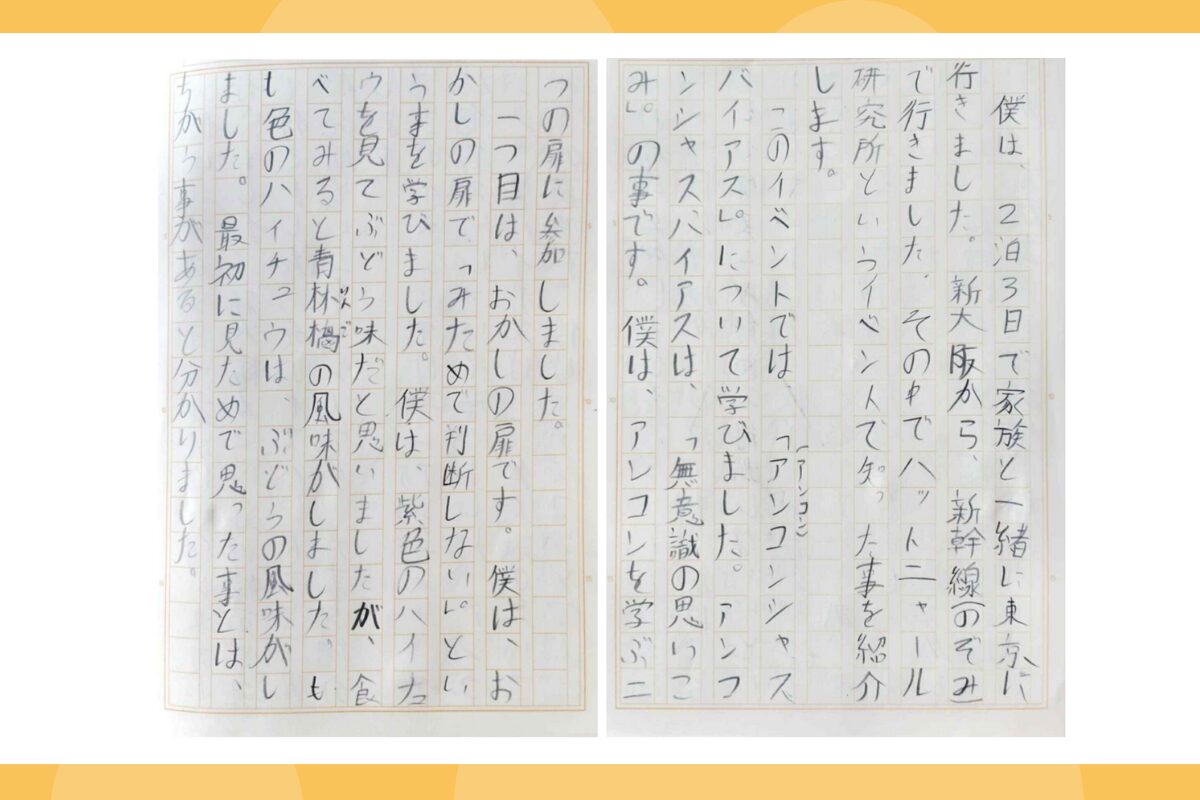 僕は、2泊3日で家族と一緒に東京に
行きました。新大阪から、新幹線(のぞみ)
で行きました。その中でハットニャール
研究所というイベントで知った事を紹介
します。
このイベントでは「アンコンシャス
(アンコン)
バイアス」。について学びました。アンコ
ンシャスバイアスは、「無意識の思いこ
み」。の事です。僕は、アンコンを学ぶ二
つの扉に参加しました。
一つ目は、おかしの扉です。僕は、お
かしの扉で、「みためで判断しない」。とい
う事を学びました。僕は、紫色のハイチュ
ウを見てぶどう味だと思いましたが、食
べてみると青林檎の風味がしました。も
りんご
も色のハイチュウは、ぶどうの風味がし
ました。最初に見ためで思った事とは、
ちがう事があると分かりました。